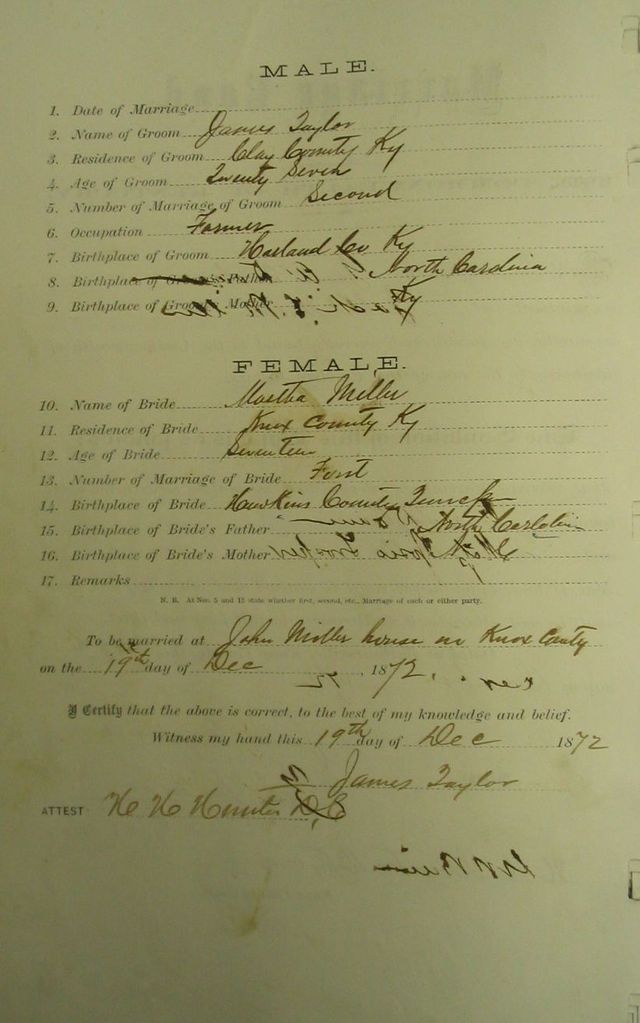 MALE.
1. Date of Marriage
2. Name of Groom James Taylor
3. Residence of Groom Clay County Ky
4. Age of Groom Twenty Seven
5. Number of Marriage of Groom Second
6. Occupation Farmer
7. Birthplace of Groom Harland Co Ky
8. Birthplace of Groom's Father North Carolina
9. Birthplace of Groom's Mother Ky
FEMALE.
10. Name of Bride Martha Miller
11. Residence of Bride Knox County Ky
12. Age of Bride Seventeen
13. Number of Marriage of Bride First
14. Birthplace of Bride Hawkins County
15. Birthplace of Bride's Father North
16. Birthplace of Bride's Mother
17. Remarks
N. B. At Nos. 5 and 13 state whether first, second, etc., Marriage of each or either party.
To be married at John Miller house in Knox County
on the 19th day of Dec 1872.
I Certify that the above is correct, to the best of my knowledge and belief.
Witness my hand this 19th day of Dec 1872
James Taylor
ATTEST